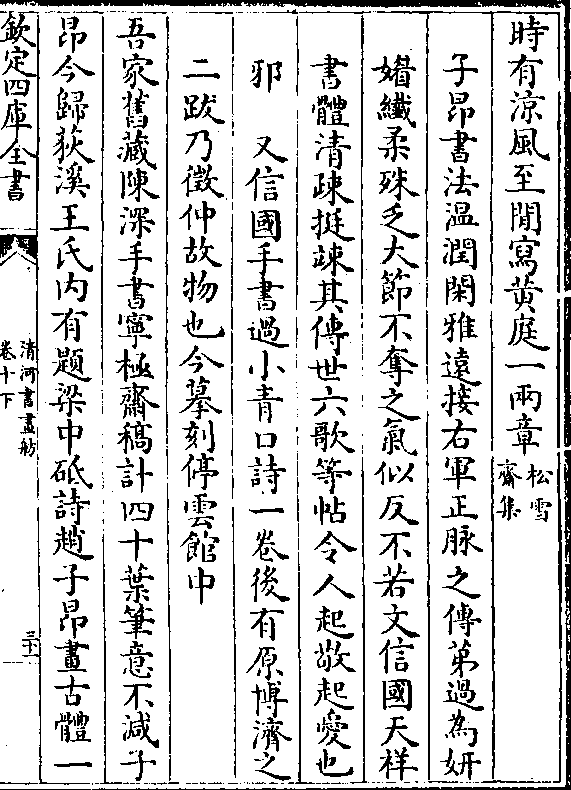 時有涼風至閒寫黄庭一兩章松雪
齋集
子昂書法温潤閑雅遠接右軍正脉之傳苐過為妍
媚纎柔殊乏大節不奪之氣似反不若文信國天祥
書體清疎挺竦其傳世六歌等帖令人起敬起愛也
邪　又信國手書過小青口詩一卷後有原博濟之
二跋乃徵仲故物也今摹刻停雲館中
吾家舊藏陳深手書寧極齋稿計四十葉筆意不減子
昂今歸荻溪王氏内有題梁中砥詩趙子昂畫古體一
欽定四庫全書
清河書畫舫
卷十下
三十一